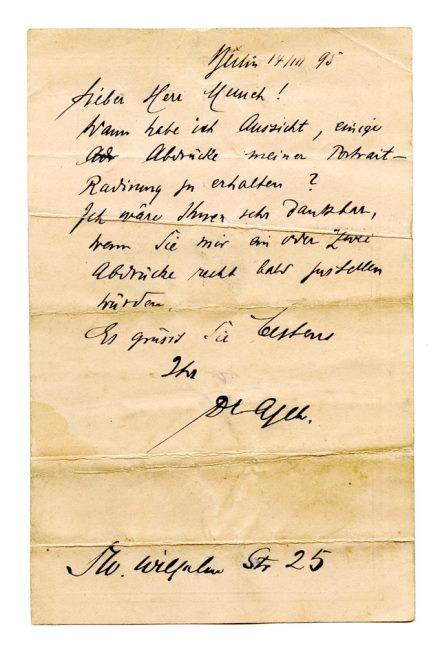 Berlin 14/III 95
Lieber Herr Munch!
Wann habe ich Aussicht, einige
Abdrücke meiner Portrait-
Radirung zu erhalten?
Ich wäre Ihnen sehr dankbar,
wenn Sie mir ein oder zwei
Abdrücke recht bald zustellen
würden.
Es grüsst Sie bestens
Ihr
Dr Asch.
SW. Wilhelm Str 25